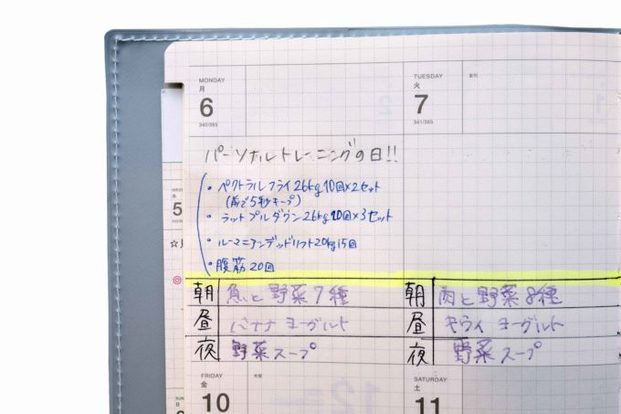 MONDAY
月
6
340/365
TUESDAY
火
7
341/365
パーソナルトレーニングの日!!
・ペクトラルフライ26kg10回×2セット
(前で5秒キープ)
・ラットプルダウン26kg10回×3セット
・ルーマニアンデッドリフト20kg15回
・腹筋20回
朝 魚と野菜7種
昼 バナナヨーグルト
夜 野菜スープ
朝 肉と野菜8種
昼 キウイヨーグルト
夜 野菜スープ
5
FRIDAY
金
10
SATURDAY
土
11